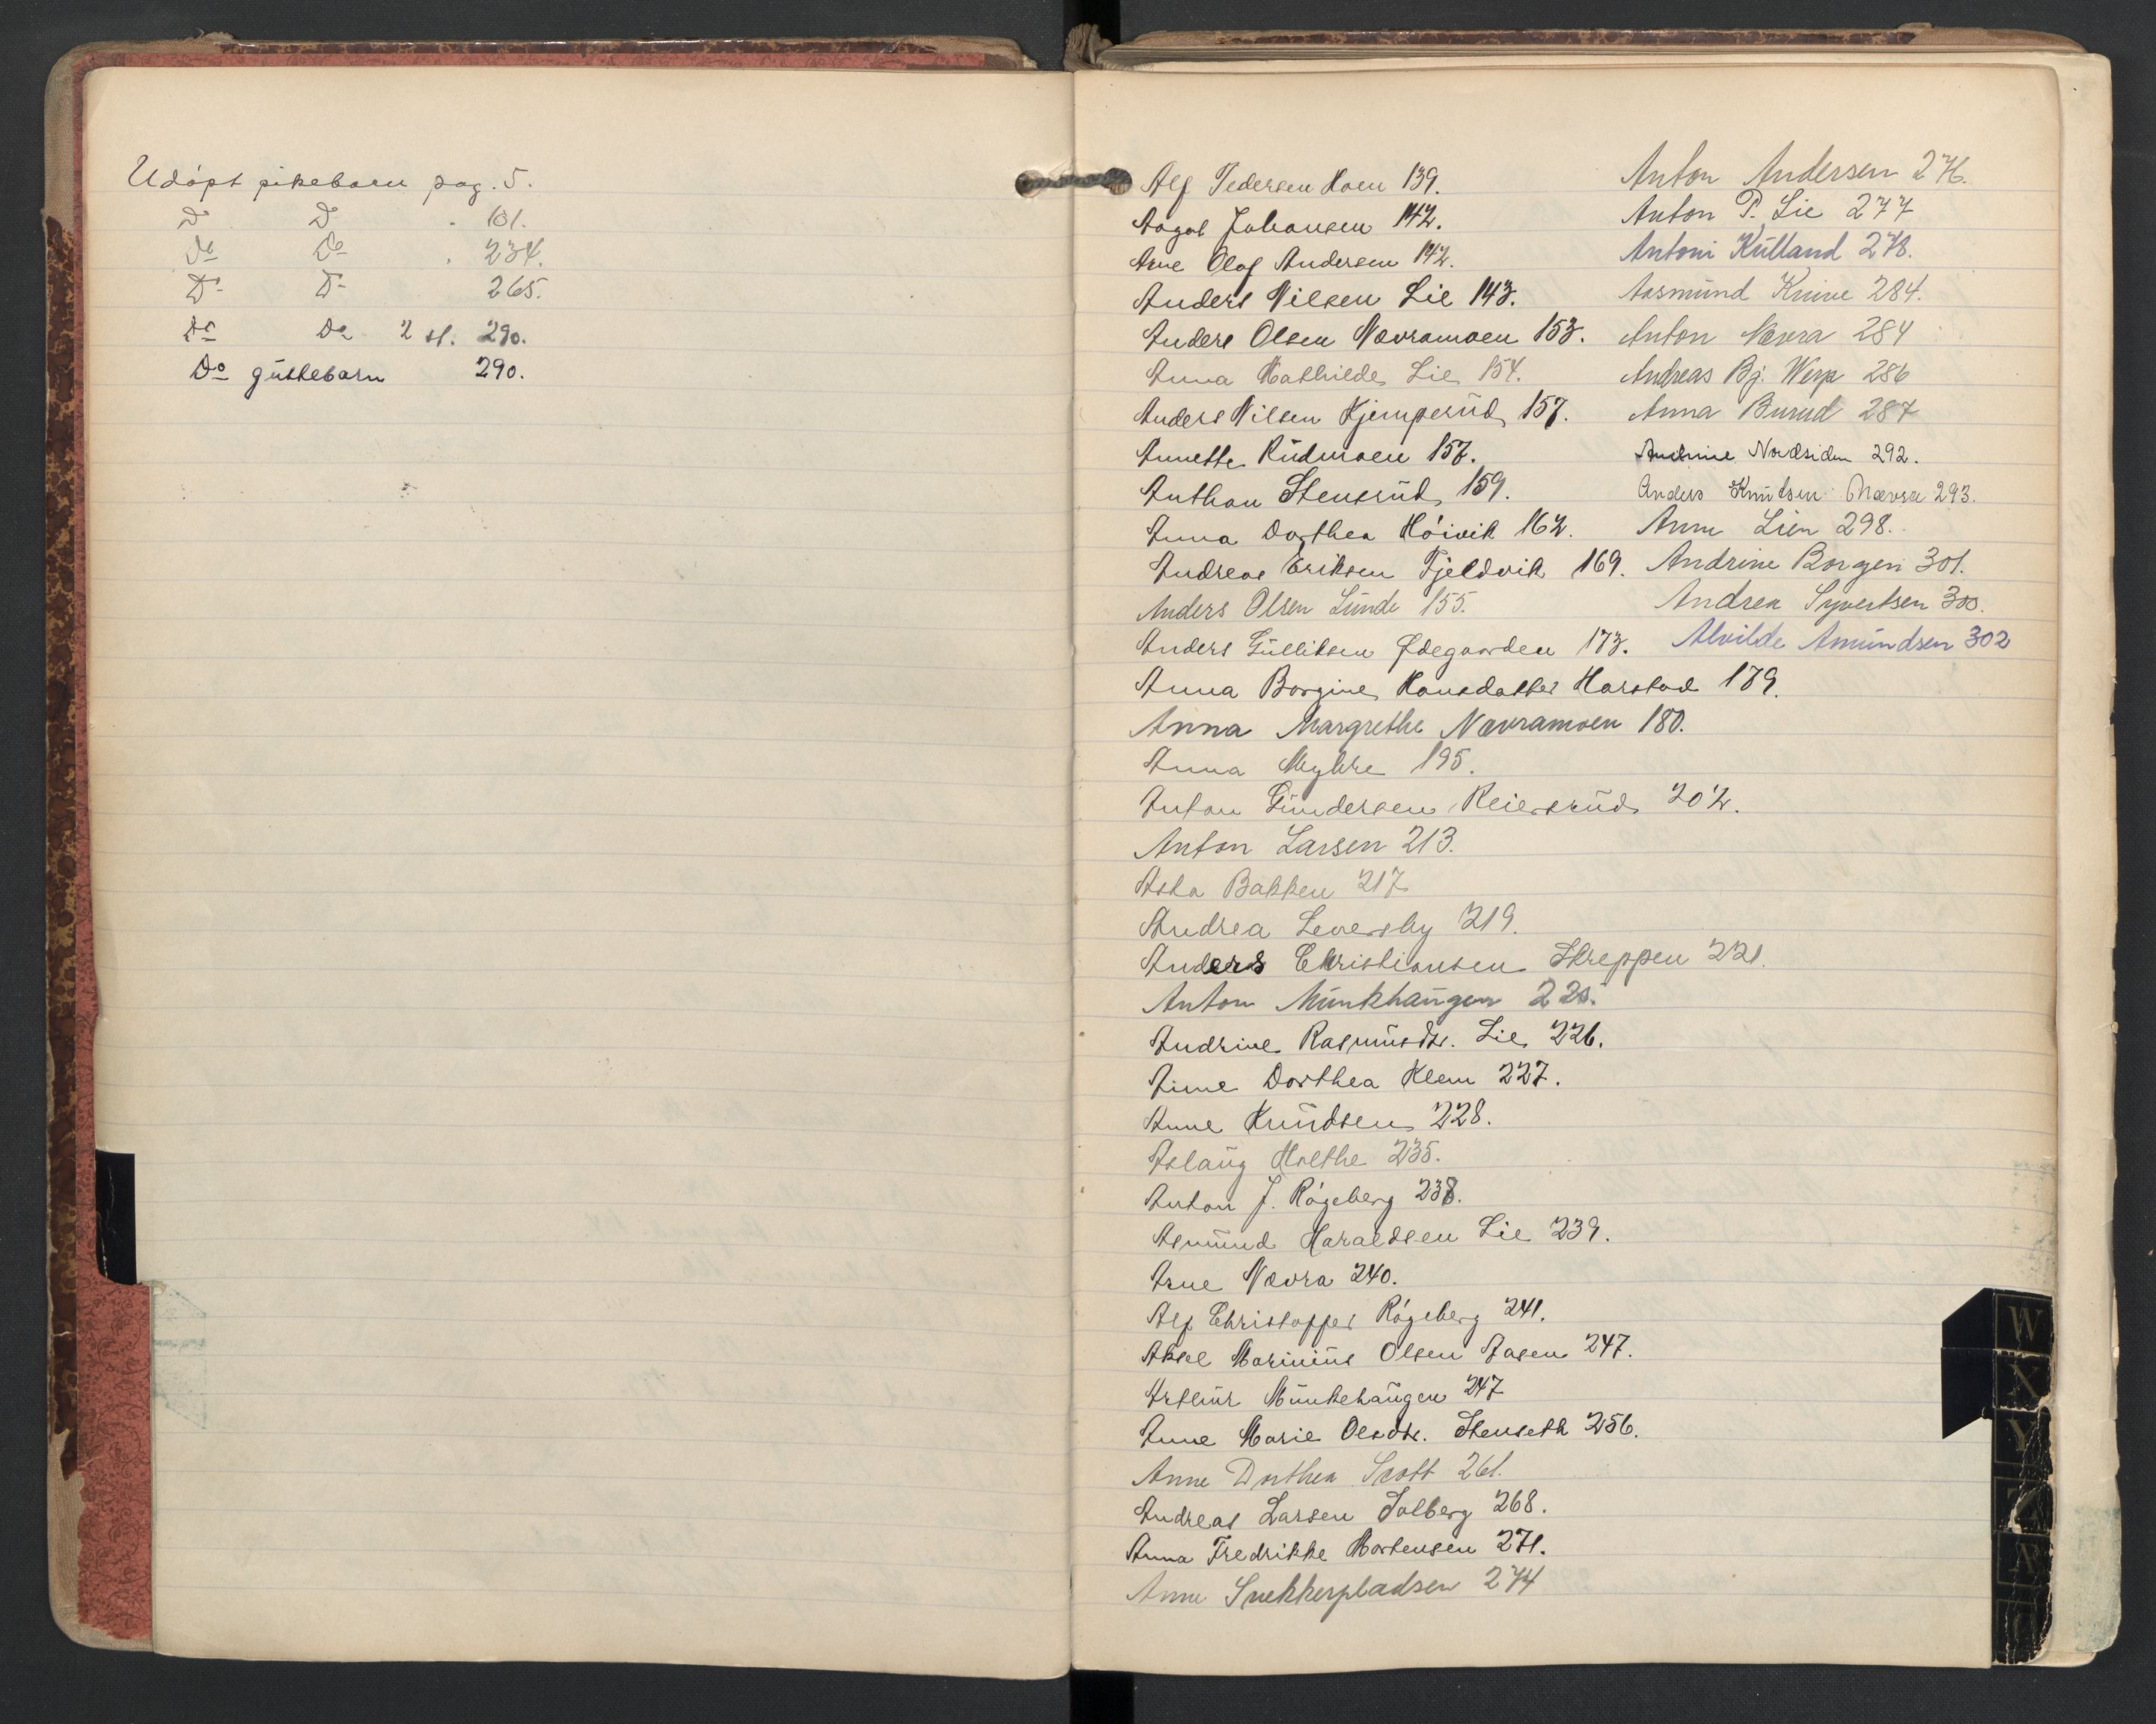 Udøpt pikebarn pag. 5.
D D - 101.
Do Do . 234.
Do Do 265.
Do Do 2 st. 290.
Do guttebarn 290.
Alf Pedersen Hoen 139.
Aagot Johansen 142.
Arne Olaf Andersen 142.
Anders Nilsen Lie 143.
Anders Olsen Nævramoen 153.
Anna Mathilde Lie 154.
Anders Nilsen Kjemperud 157.
Annette Rudmoen 157.
Anthon Stensrud 159.
Anna Dorthea Høivik 162.
Andreas Eriksen Fjeldvik 169.
Anders Olsen Lunde 155.
Anders Gulliksen Ødegaarden 173.
Anna Borgine Hansdatter Harstad 179.
Anna Margrethe Nævramoen 180.
Anna Myhre 195.
Anton Gundersen Reiersrud 202.
Anton Larsen 213.
Asta Bakken 217
Andrea Leversby 219.
Anders Christiansen Skreppen 221.
Anton Munkhaugen 225.
Andrine Rasmusdtr. Lie 226.
Anne Dorthea Klem 227.
Anne Knudsen 228.
Aslaug Holthe 235.
Anton J. Røgeberg 238.
Asmund Haraldsen Lie 239.
Arne Nævra 240.
Alf Christoffer Røgeberg 241.
Aksel Marinius Olsen Aasen 247.
Arthur Munkehaugen 247
Anne Marie Olsdtr. Stenseth 256.
Anne Dorthea Scott 261.
Andreas Larsen Solberg 268.
Anna Fredrikke Mortensen 271.
Anne Snekkerpladsen 274
Anton Andersen 276.
Anton P. Lie 277
Antoni Kulland 278.
Aasmund Knive 284.
Anton Nævra 284
Andreas Bj. Werp 286
Anna Burud 287
Andrine Nordsiden 292.
Anders Knutsen Nævra 293.
Anne Lien 298.
Andrine Borgen 301.
Andrea Syvertsen 300.
Alvilde Amundsen 302
W
X
Y
Z